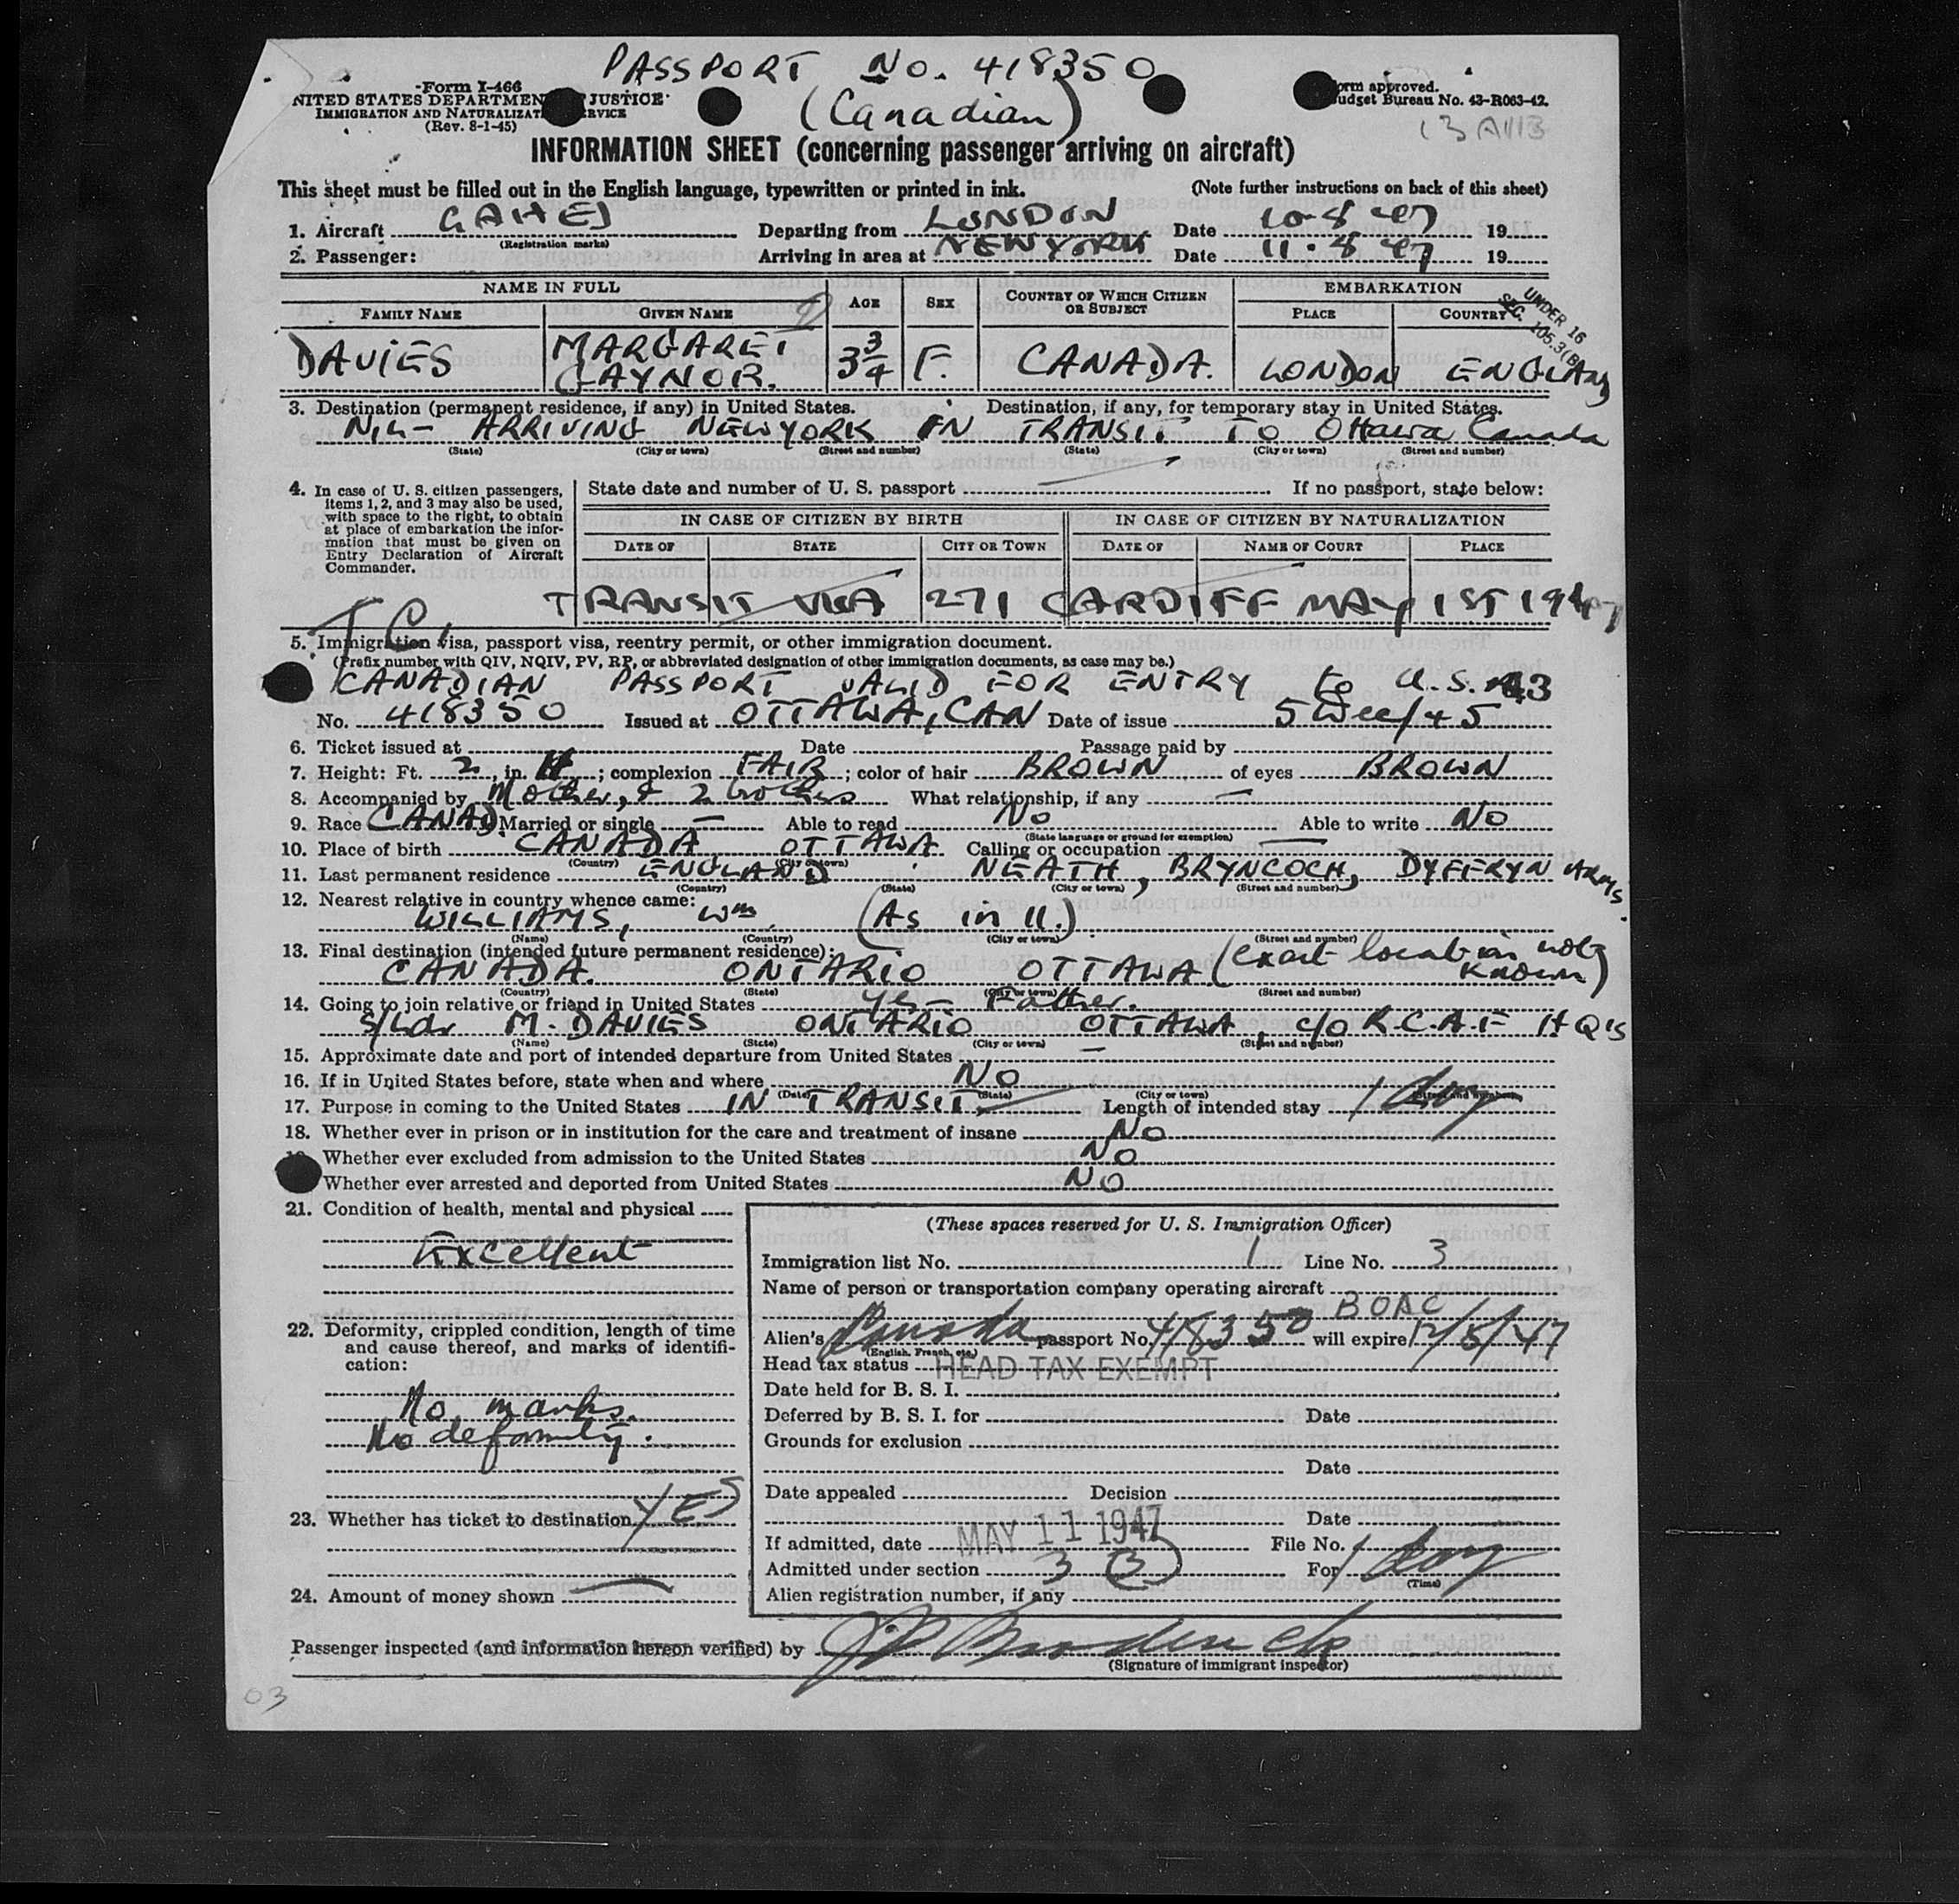 PASSPORT No. 418350
(Canadian)
Form I-466
NITED STATES DEPARTMEN JUSTICE
IMMIGRATION AND NATURALIZAT RVICE
(Rev. 8-1-45)
orm approved.
udget Bureau No. 43-R063-42.
INFORMATION SHEET (concerning passenger arriving on aircraft)
This sheet must be filled out in the English language, typewritten or printed in ink. (Note further instructions on back of this sheet)
1. Aircraft GAHEJ Departing from LONDON Date 19
(Registration marks)
2. Passenger: Arriving in area at NEW YORK Date 19
NAME IN FULL AGE SEX COUNTRY OF WHICH CITIZEN OR SUBJECT EMBARKATION
FAMILY NAME GIVEN NAME PLACE COUNTRY
UNDER 16
SEC. 105.3(B)
DAVIES MARGARET GAYNOR. 3 3/4 F. CANADA. LONDON ENGLAND
3. Destination (permanent residence, if any) in United States. Destination, if any, for temporary stay in United States.
NIL - ARRIVING NEW YORK IN TRANSIT TO Ottawa Canada
(State) (City or town) (Street and number) (State) (City or town) (Street and number)
4. In case of U. S. citizen passengers, items 1, 2, and 3 may also be used, with space to the right, to obtain at place of embarkation the information that must be given on Entry Declaration of Aircraft Commander.
State date and number of U. S. passport If no passport, state below:
IN CASE OF CITIZEN BY BIRTH IN CASE OF CITIZEN BY NATURALIZATION
DATE OF STATE CITY OR TOWN DATE OF NAME OF COURT PLACE
TRANSIT VISA 271 CARDIFF MAY 1ST 1947
5. Immigration visa, passport visa, reentry permit, or other immigration document.
(Prefix number with QIV, NQIV, PV, RP, or abbreviated designation of other immigration documents, as case may be.)
CANADIAN PASSPORT VALID FOR ENTRY to U.S.
No. 418350 Issued at OTTAWA, CAN Date of issue 5 Dec/45
6. Ticket issued at Date Passage paid by
7. Height: Ft. 2, in. ; complexion FAIR; color of hair BROWN of eyes BROWN
8. Accompanied by Mother, & 2 brothers What relationship, if any —
9. Race CANAD. Married or single — Able to read No Able to write No
(State language or ground for exemption)
10. Place of birth CANADA OTTAWA Calling or occupation —
(Country) (City or town)
11. Last permanent residence ENGLAND NEATH, BRYNCOCH, DYFFRYN ARMS.
(Country) (State) (City or town) (Street and number)
12. Nearest relative in country whence came:
WILLIAMS, Wm. (As in 11.)
(Name) (Country) (City or town) (Street and number)
13. Final destination (intended future permanent residence):
CANADA. ONTARIO OTTAWA (exact location not known)
(Country) (State) (City or town) (Street and number)
14. Going to join relative or friend in United States Yes - Father.
S/Ldr M. DAVIES ONTARIO OTTAWA, c/o R.C.A.F HQ's
(Name) (State) (City or town) (Street and number)
15. Approximate date and port of intended departure from United States —
16. If in United States before, state when and where NO
(Date) (State) (City or town) (Street and number)
17. Purpose in coming to the United States IN TRANSIT Length of intended stay 1 day
18. Whether ever in prison or in institution for the care and treatment of insane No
Whether ever excluded from admission to the United States NO
Whether ever arrested and deported from United States NO
21. Condition of health, mental and physical
Excellent
22. Deformity, crippled condition, length of time and cause thereof, and marks of identification:
No marks.
No deformity.
23. Whether has ticket to destination YES
24. Amount of money shown —
(These spaces reserved for U. S. Immigration Officer)
Immigration list No. 1 Line No. 3
Name of person or transportation company operating aircraft
BOAC
Alien's Canada passport No. 418350 will expire 12/5/47
(English, French, etc.)
Head tax status HEAD TAX EXEMPT
Date held for B. S. I.
Deferred by B. S. I. for Date
Grounds for exclusion
Date
Date appealed Decision
Date
If admitted, date MAY 11 1947 File No.
Admitted under section 3 (3) For 1 day
(Time)
Alien registration number, if any
Passenger inspected (and information hereon verified) by
(Signature of immigrant inspector)
03